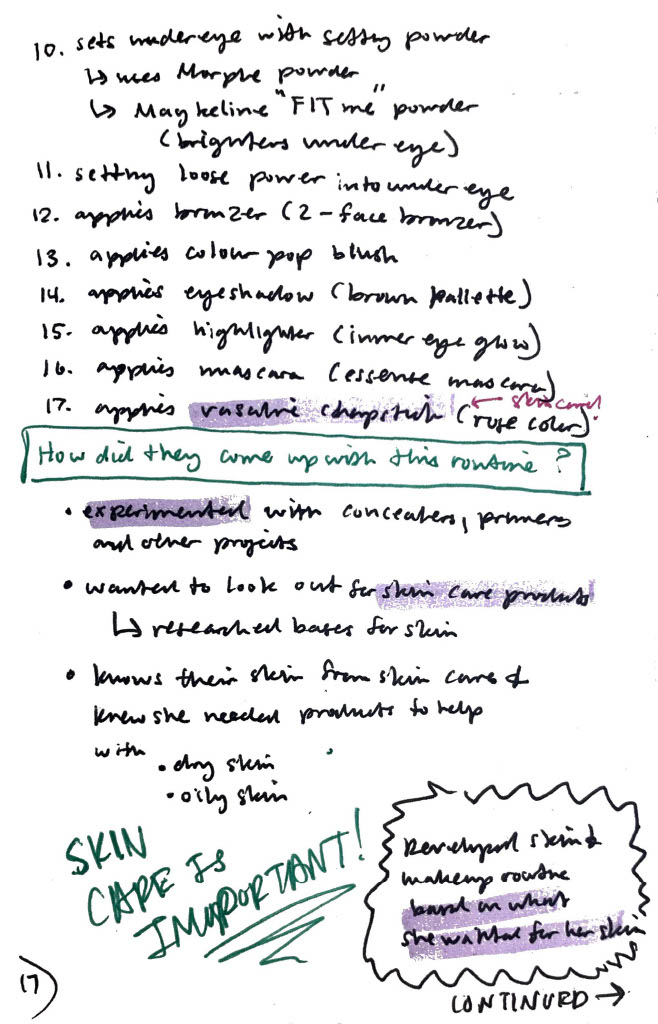 10. sets undereye with setting powder
↳ uses Morphe powder
↳ Maybeline "FIT me" powder
(brightens under eye)
11. setting loose power into under eye
12. applies bronzer (2-face bronzer)
13. applies colour pop blush
14. applies eyeshadow (brown pallette)
15. applies highlighter (inner eye glow)
16. applies mascara (essense mascara)
17. applies vasaline chapstick (rose color)
← skin care!
How did they come up with this routine?
• experimented with concealers, primers
and other projects
• wanted to look out for skin care products
↳ researched bases for skin
• knows their skin from skin care &
knew she needed products to help
with
• dry skin
• oily skin
SKIN
CARE IS
IMPORTANT!
Developed skin &
makeup routine
based on what
she wanted for her skin
17
CONTINUED →